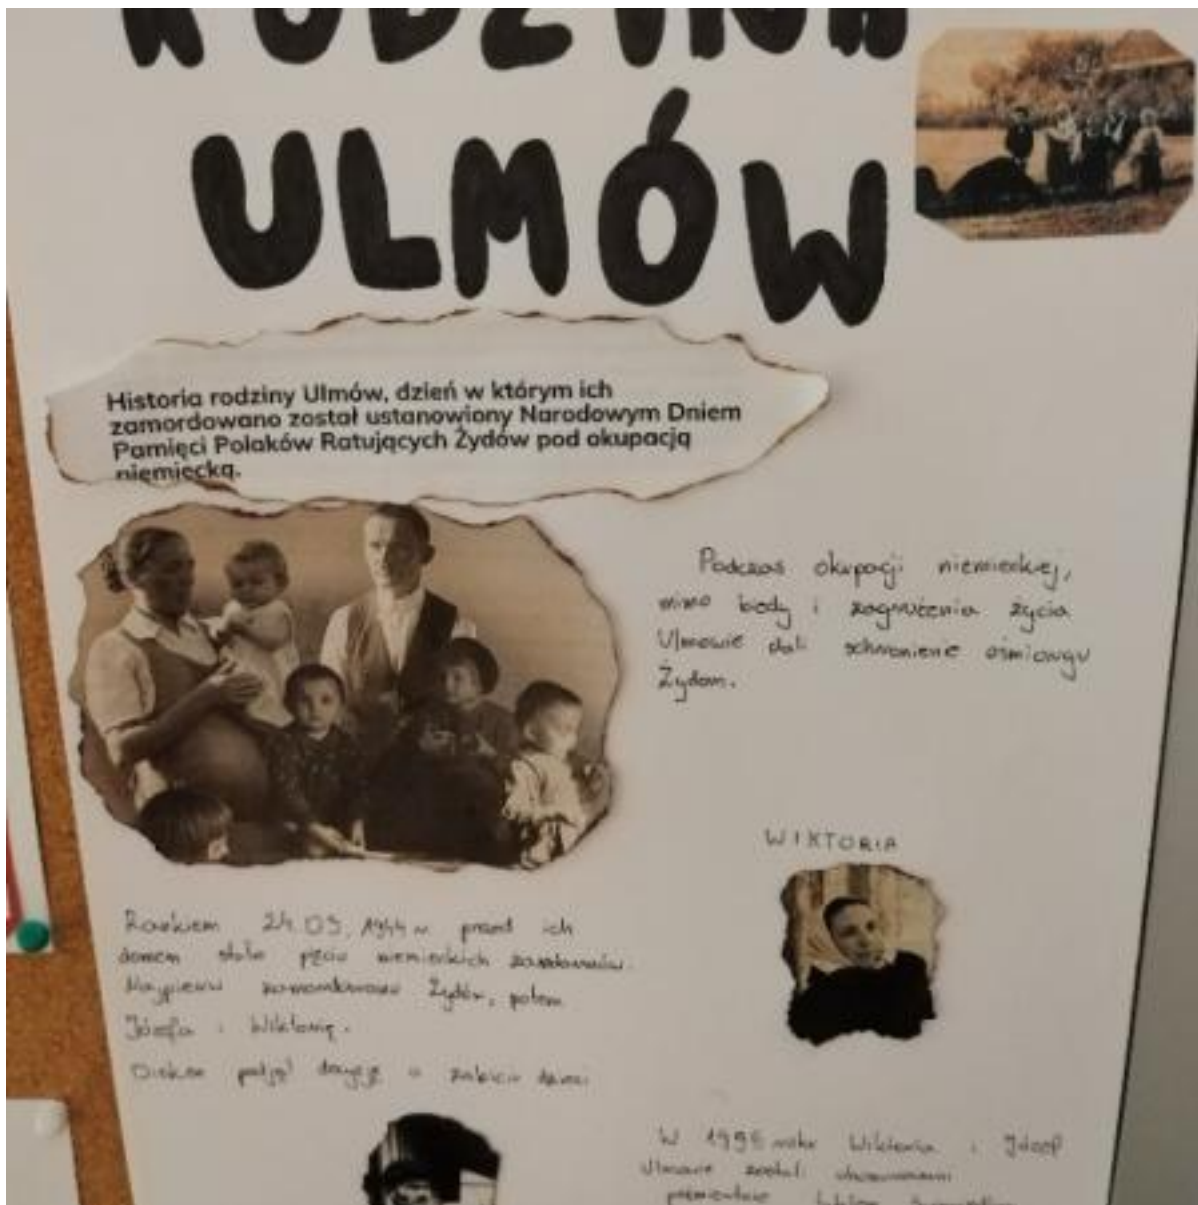 RODZINA
ULMÓW
Historia rodziny Ulmów, dzień w którym ich
zamordowano został ustanowiony Narodowym Dniem
Pamięci Polaków Ratujących Żydów pod okupacją
niemiecką.
Podczas okupacji niemieckiej,
mimo biedy i zagrożenia życia
Ulmowie dali schronienie ośmiorgu
Żydom.
WIKTORIA
Rankiem 24.03.1944 r. przed ich
domem stało pięciu niemieckich żandarmów.
Najpierw zamordowano Żydów, potem
Józefa i Wiktorię.
podjął decyzję o zabiciu dzieci
W 1995 roku Wiktoria i Józef
Ulmowie zostali uhonorowani
pośmiertnie tytułem